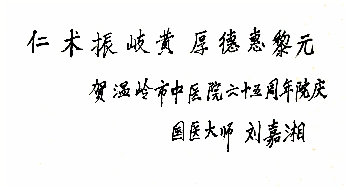 仁术振岐黄 厚德惠黎元
贺温岭市中医院六十五周年院庆
国医大师 刘嘉湘